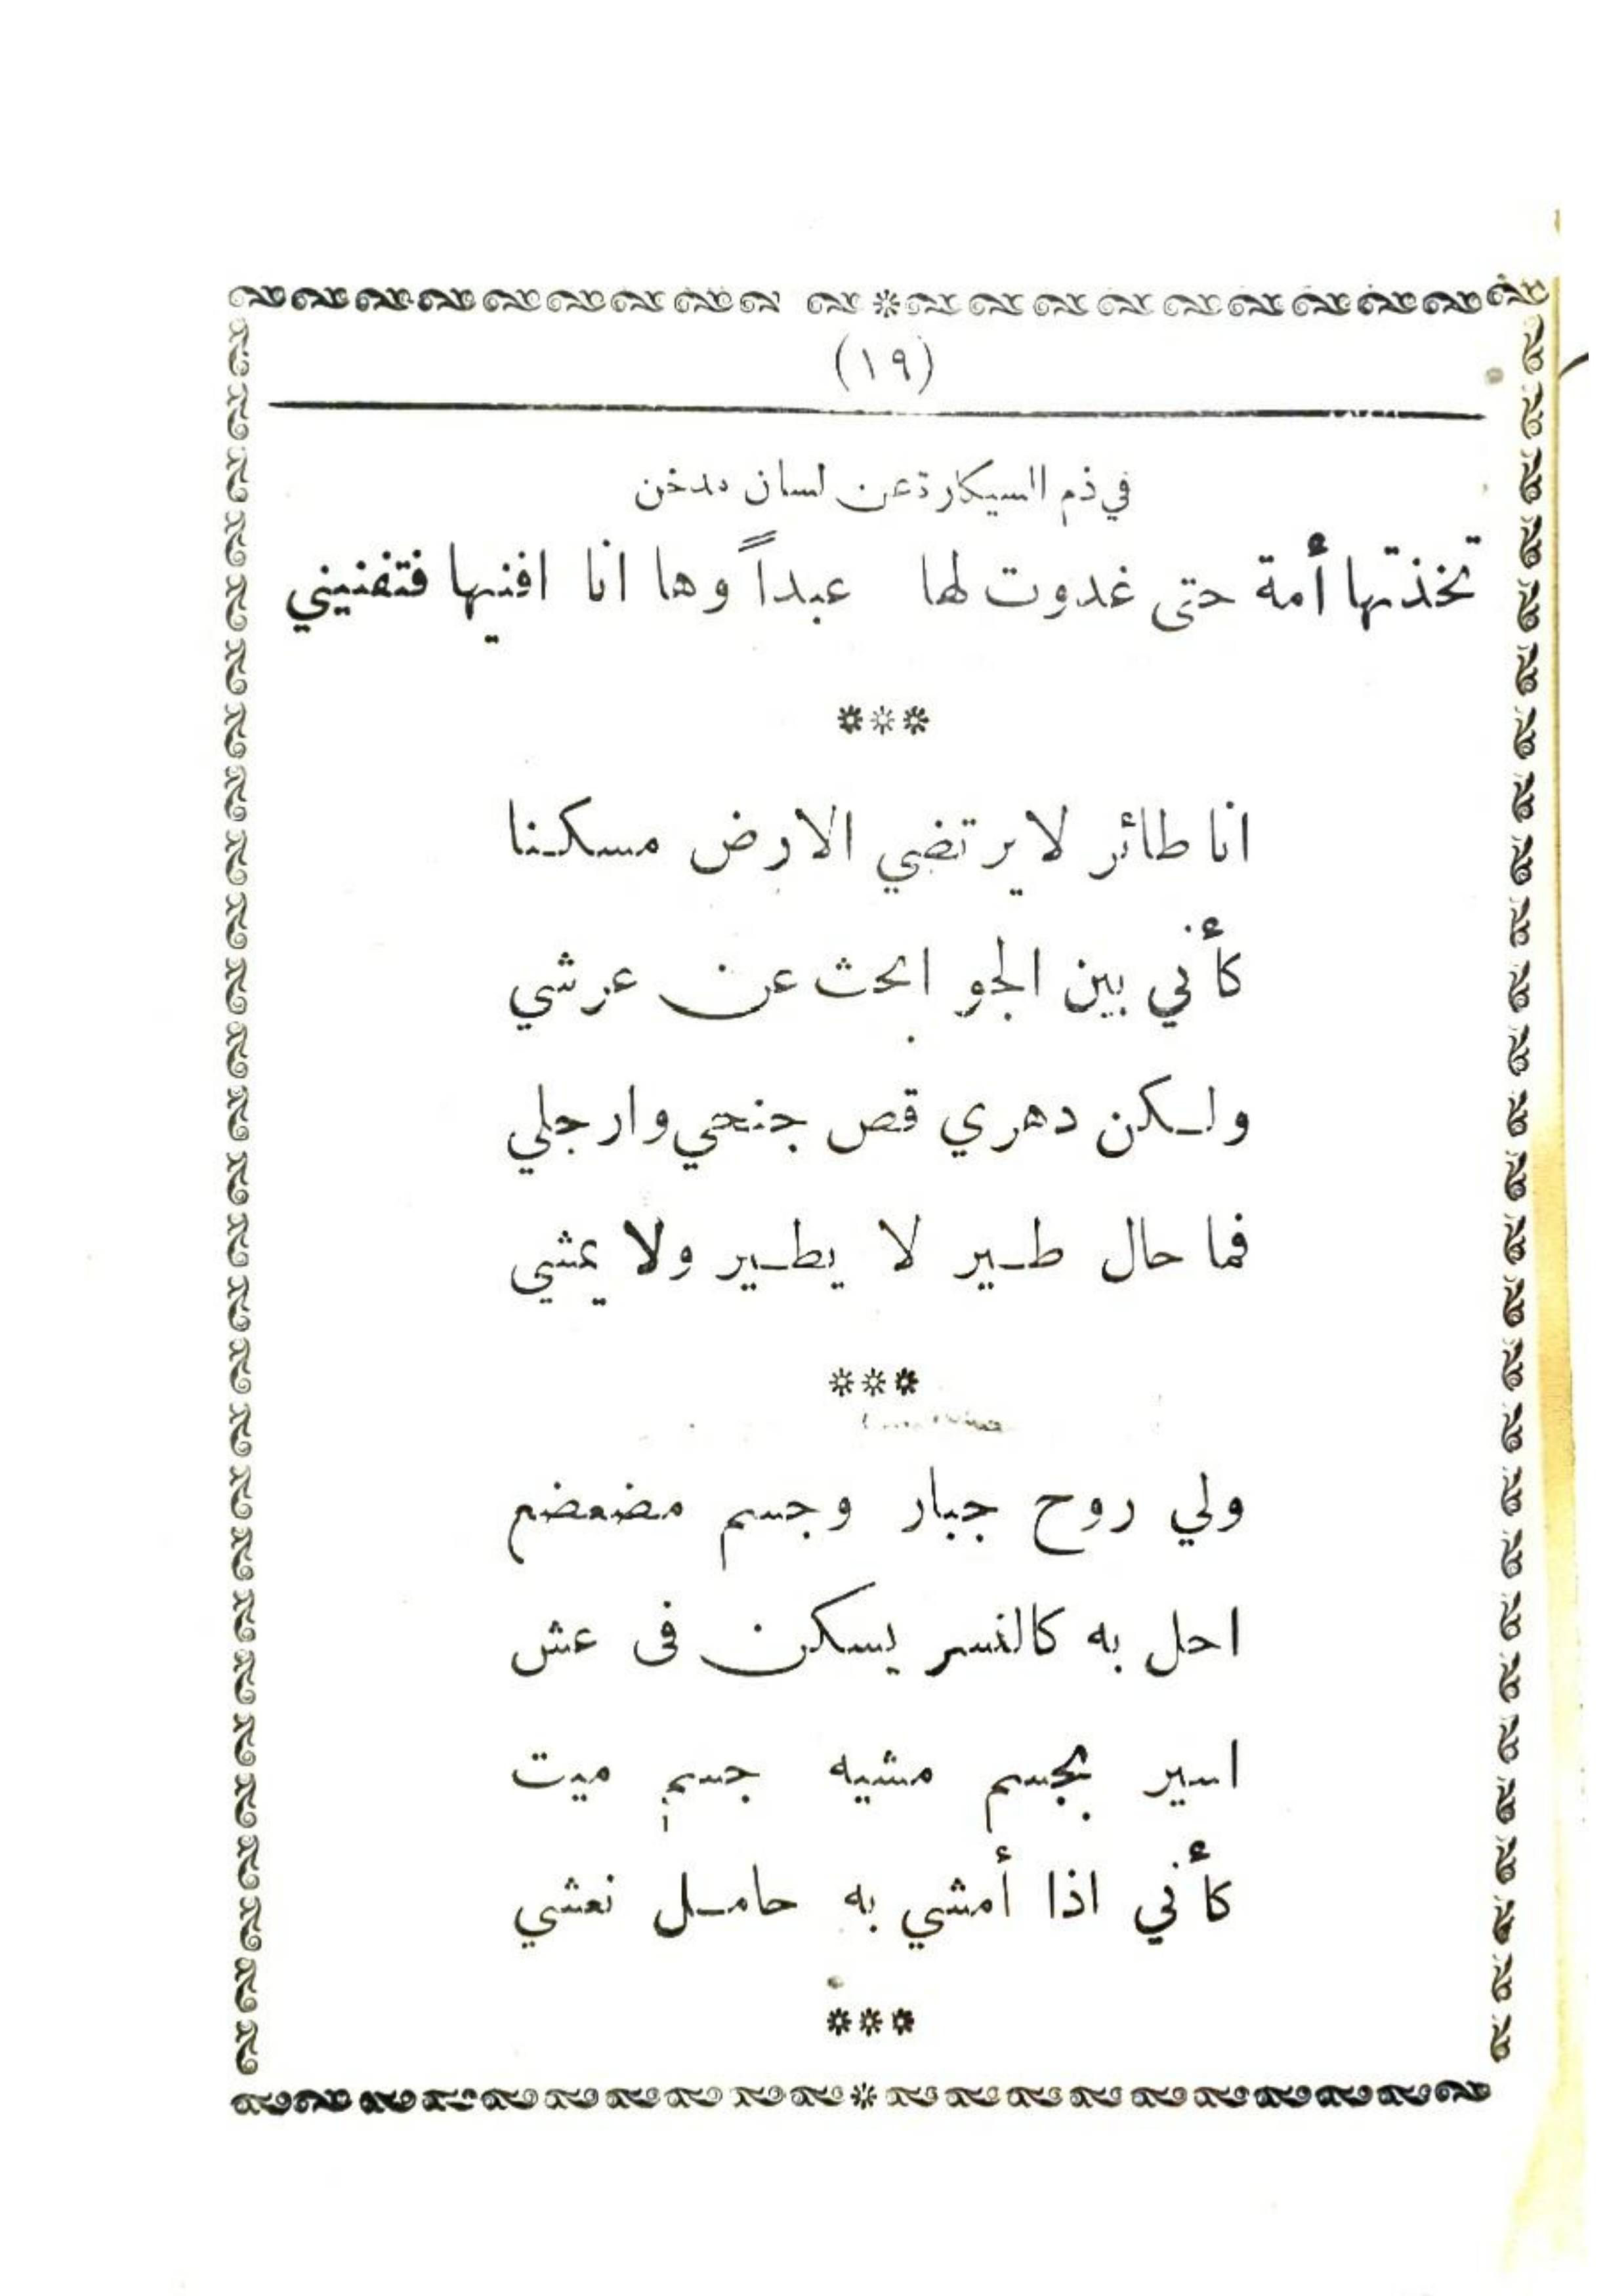 (١٩)
في ذم السيكارة عن لسان مدخن
تخذتها أمة حتى غدوت لها عبداً وها انا افنيها فتفنيني
***
انا طائر لا يرتضي الارض مسكنا
كأني بين الجو ابحث عن عرشي
ولكن دهري قص جنحي وارجلي
فما حال طير لا يطير ولا يمشي
***
ولي روح جبار وجسم مضعضع
احل به كالنسر يسكن فى عش
اسير بجسم مشيه جسم ميت
كأني اذا أمشي به حامل نعشي
***